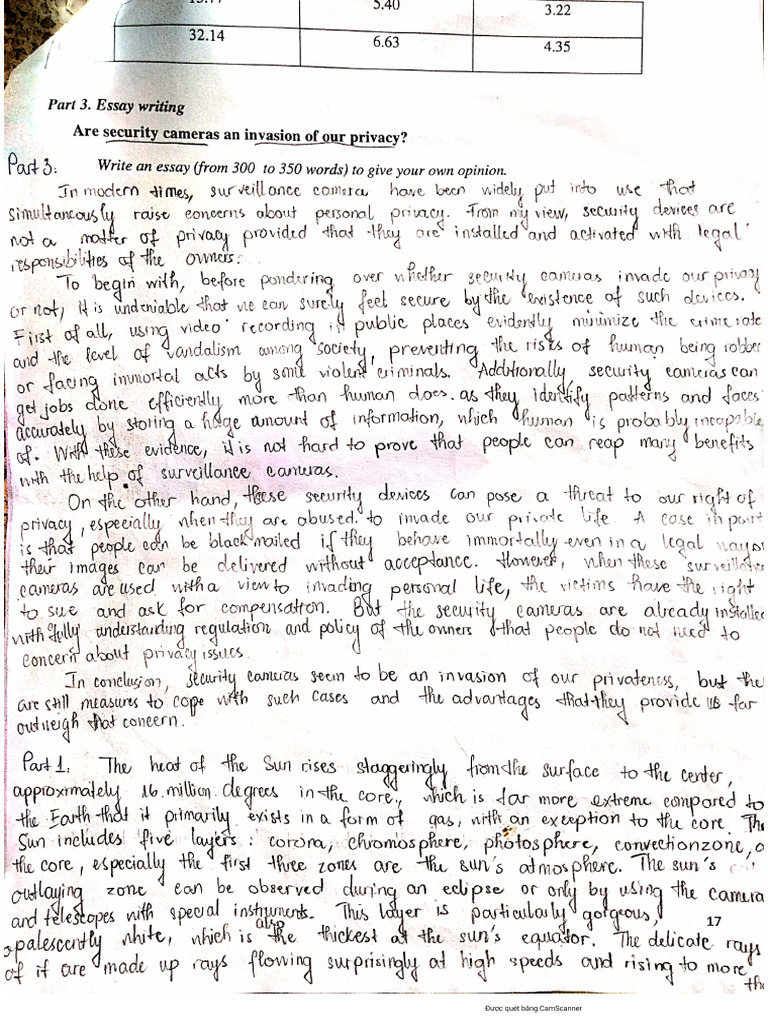 13.77 5.40 3.22
32.14 6.63 4.35
Part 3. Essay writing
Are security cameras an invasion of our privacy?
Part 3: Write an essay (from 300 to 350 words) to give your own opinion.
In modern times, surveillance camera have been widely put into use that
simultaneously raise concerns about personal privacy. From my view, security devices are
not a matter of privacy provided that they are installed and activated with legal
responsibilities of the owners.
To begin with, before pondering over whether security cameras invade our privacy
or not, it is undeniable that we can surely feel secure by the existence of such devices.
First of all, using video recording in public places evidently minimize the crime rate
and the level of vandalism among society, preventing the risks of human being robber
or facing immortal acts by some violent criminals. Additionally security cameras can
get jobs done efficiently more than human does. as they identify patterns and faces
accurately by storing a huge amount of information, which human is probably incapable
of. With these evidence, it is not hard to prove that people can reap many benefits
with the help of surveillance cameras.
On the other hand, these security devices can pose a threat to our right of
privacy, especially when they are abused to invade our private life. A case in point
is that people can be blackmailed if they behave immortally even in a legal ways or
their images can be delivered without acceptance. However, when these surveillance
cameras are used with a view to invading personal life, the victims have the right
to sue and ask for compensation. But the security cameras are already installed
with fully understanding regulation and policy of the owners that people do not need to
concern about privacy issues.
In conclusion, security cameras seem to be an invasion of our privateness, but the
are still measures to cope with such cases and the advantages that they provide us far
outweigh that concern.
Part 1. The heat of the Sun rises staggeringly from the surface to the center,
approximately 16 million degrees in the core., which is far more extreme compared to
the Earth that it primarily exists in a form of gas, with an exception to the core. The
Sun includes five layers: corona, chromosphere, photosphere, convectionzone,
the core, especially the first three zones are the sun's atmosphere. The sun's
outlaying zone can be observed during an eclipse or only by using the camera
and telescopes with special instruments. This layer is particularly gorgous,
17
opalescently white, which is also the thickest at the sun's equator. The delicate rays
of it are made up rays flowing surprisingly at high speeds and rising to more
tha
Được quét bằng CamScanner